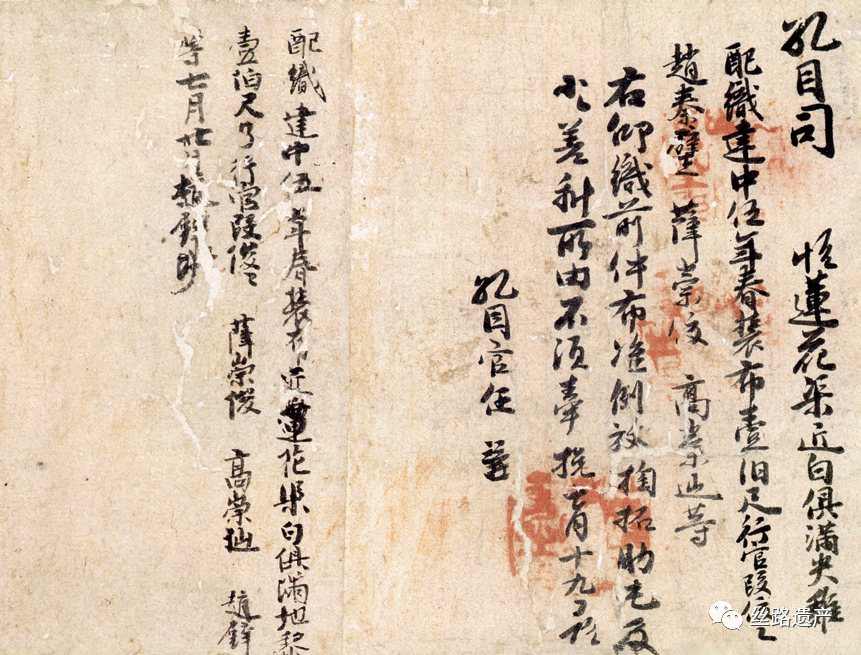 孔目司 帖蓮花渠匠白俱滿失雞
配織建中伍年春裝布壹伯尺行官段俊々
趙秦璧 薛崇俊 高崇迅等
右仰織前件布准例放掏拓助屯及
小々差科所由不須牽挽七月十九日帖
孔目官任 善
配織建中伍年春裝布匠蓮花渠白俱滿地黎
壹伯尺了行官段俊々 薛崇俊 高崇迅 趙
等七月廿日趙 抄
丝路遗产